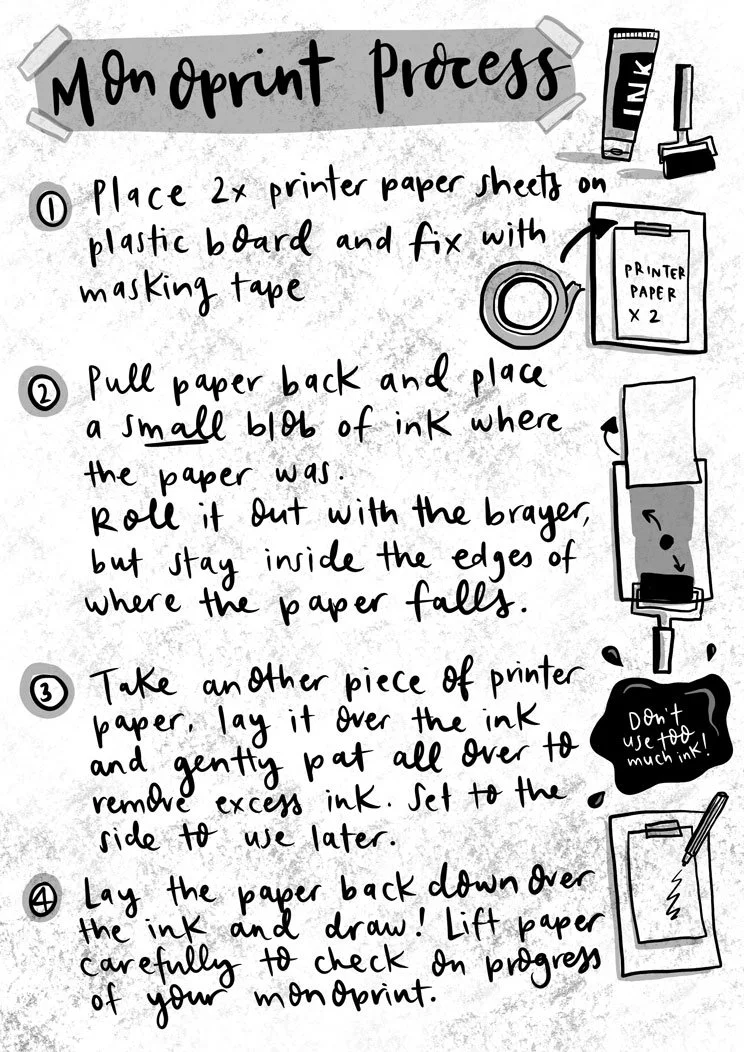 Monoprint Process
INK
1 Place 2x printer paper sheets on
plastic board and fix with
masking tape
PRINTER
PAPER
X 2
2 Pull paper back and place
a small blob of ink where
the paper was.
Roll it out with the brayer,
but stay inside the edges of
where the paper falls.
3 Take another piece of printer
paper, lay it over the ink
and gently pat all over to
remove excess ink. Set to the
side to use later.
Don't
use too
much ink!
4 Lay the paper back down over
the ink and draw! Lift paper
carefully to check on progress
of your monoprint.